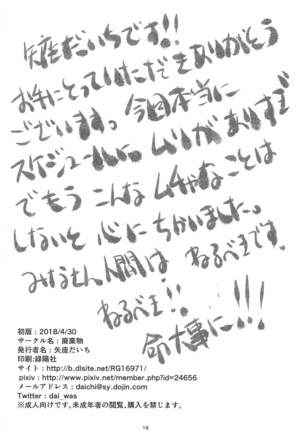 矢座だいちです!!
お手にとっていただきありがとう
ございます。今回本当に
スケジュールに。ムリがありすぎ
でもう こんな ムチャなことは
しないと 心に ちかいました。
みなさん人間は ねるべきです。
ねるべき!!
命大事に!!!
初版：2018/4/30
サークル名：廃棄物
発行者名：矢座だいち
印刷：緑陽社
サイト：http://b.dlsite.net/RG16971/
pixiv：http://www.pixiv.net/member.php?id=24656
メールアドレス：daichi@sy.dojin.com
Twitter：dai_was
※成人向けです。未成年者の閲覧、購入を禁じます。
18